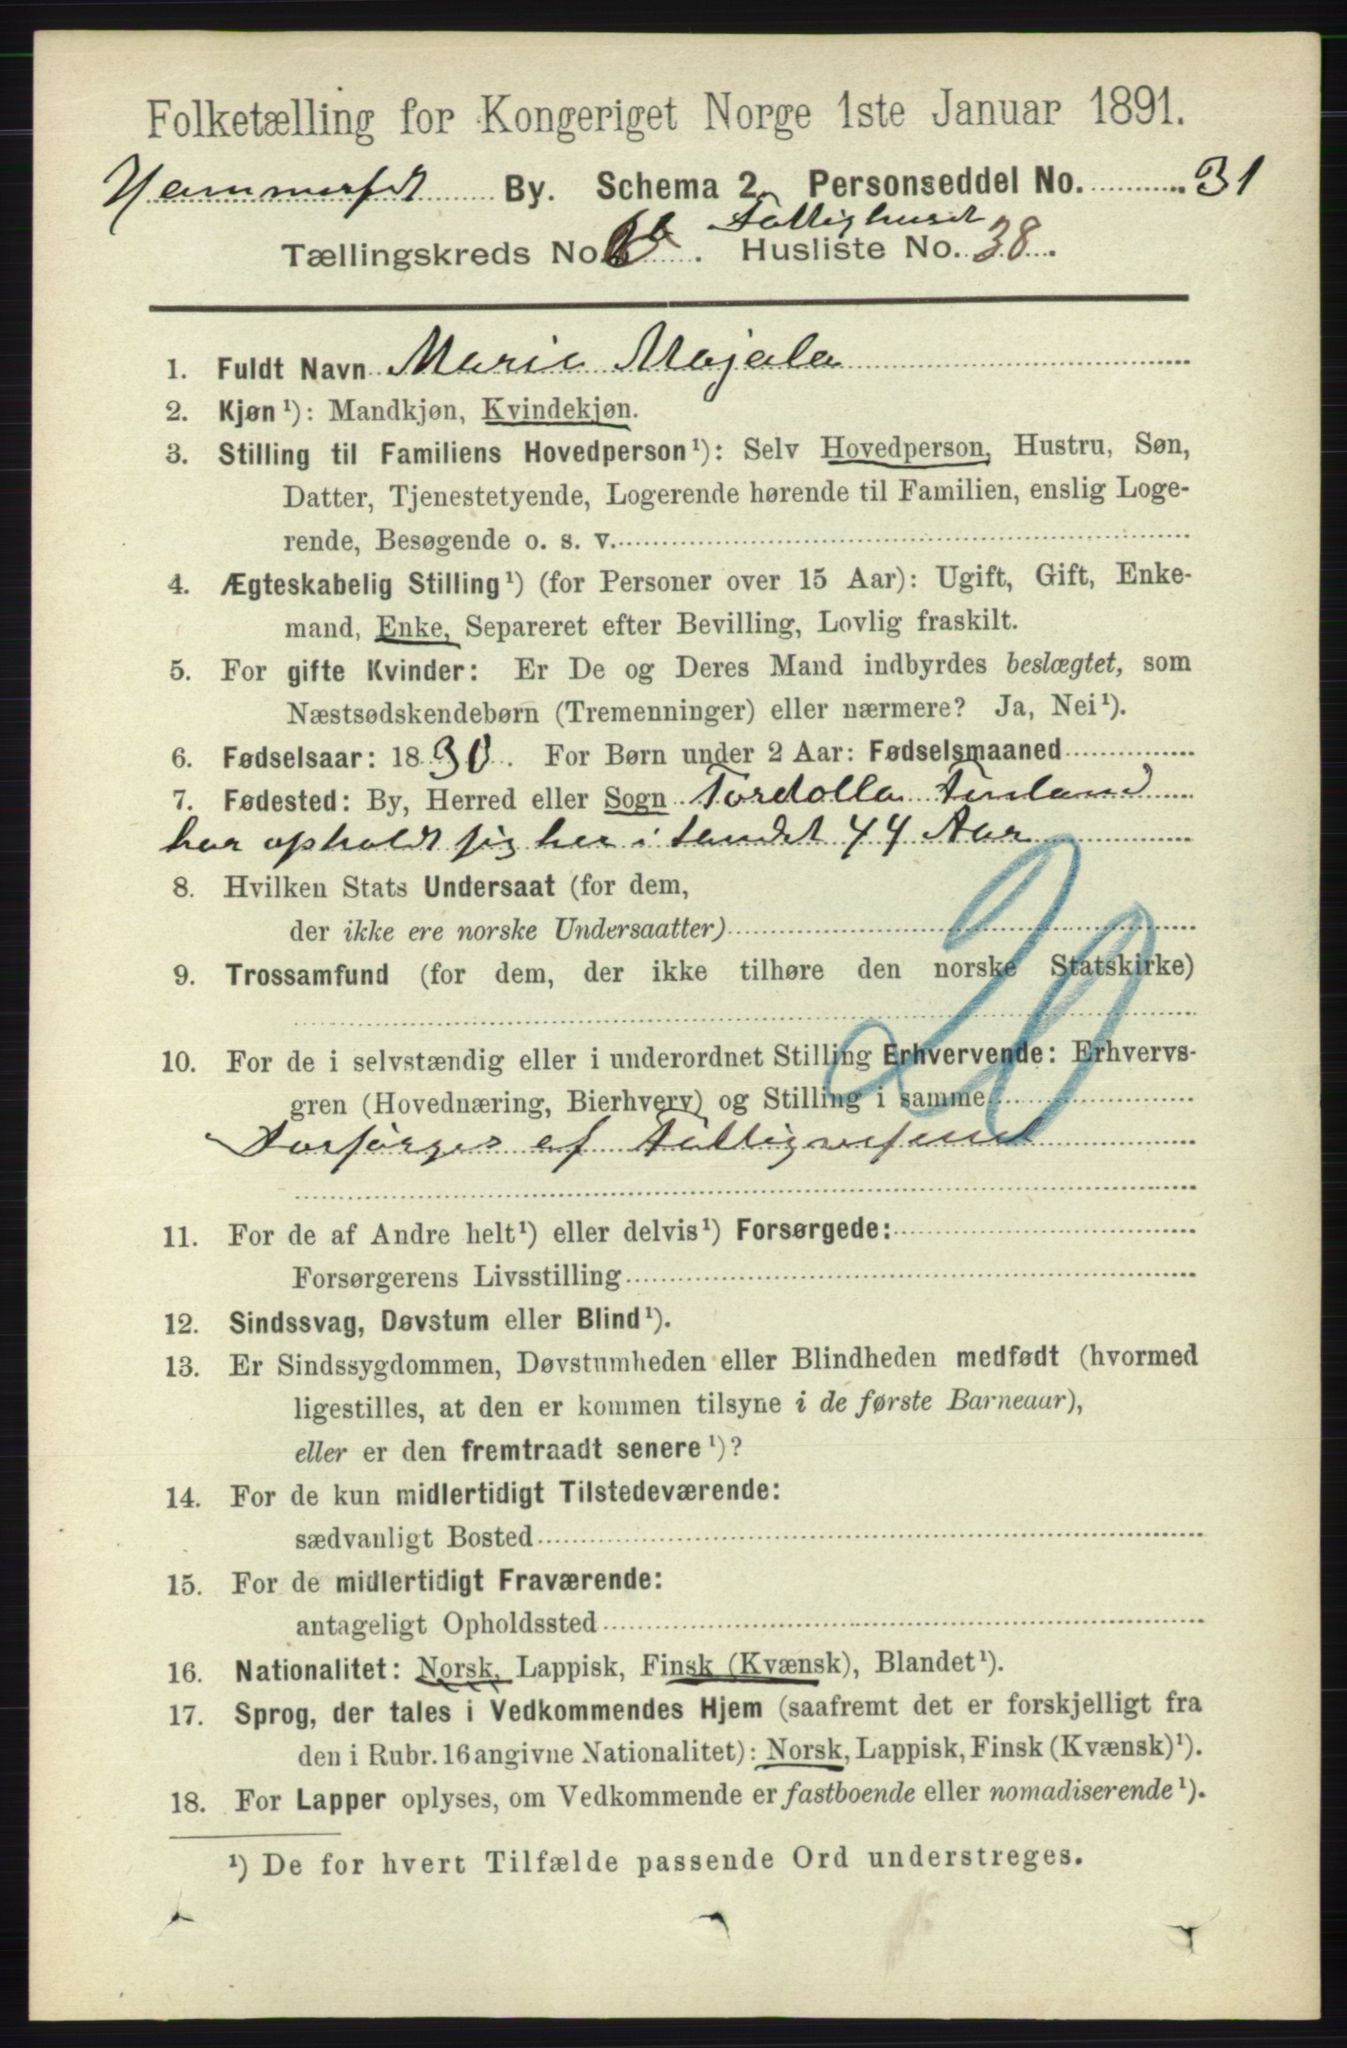 Folketælling for Kongeriget Norge 1ste Januar 1891.
Hammerfest By. Schema 2. Personseddel No. 31
Fattighuset
Tællingskreds No. 6 b. Husliste No. 38.
1. Fuldt Navn Marie Majala
2. Kjøn¹): Mandkjøn, Kvindekjøn.
3. Stilling til Familiens Hovedperson¹): Selv Hovedperson, Hustru, Søn,
Datter, Tjenestetyende, Logerende hørende til Familien, enslig Loge-
rende, Besøgende o. s. v.
4. Ægteskabelig Stilling¹) (for Personer over 15 Aar): Ugift, Gift, Enke-
mand, Enke, Separeret efter Bevilling, Lovlig fraskilt.
5. For gifte Kvinder: Er De og Deres Mand indbyrdes beslægtet, som
Næstsødskendebørn (Tremenninger) eller nærmere? Ja, Nei¹).
6. Fødselsaar: 1830. For Børn under 2 Aar: Fødselsmaaned
7. Fødested: By, Herred eller Sogn Tordolla Finland
har opholdt sig her i landet 44 Aar
8. Hvilken Stats Undersaat (for dem,
der ikke ere norske Undersaatter)
9. Trossamfund (for dem, der ikke tilhøre den norske Statskirke)
20
10. For de i selvstændig eller i underordnet Stilling Erhvervende: Erhvervs-
gren (Hovednæring, Bierhverv) og Stilling i samme
Forsørges af Fattigvæsenet
11. For de af Andre helt¹) eller delvis¹) Forsørgede:
Forsørgerens Livsstilling
12. Sindssvag, Døvstum eller Blind¹).
13. Er Sindssygdommen, Døvstumheden eller Blindheden medfødt (hvormed
ligestilles, at den er kommen tilsyne i de første Barneaar),
eller er den fremtraadt senere¹)?
14. For de kun midlertidigt Tilstedeværende:
sædvanligt Bosted
15. For de midlertidigt Fraværende:
antageligt Opholdssted
16. Nationalitet: Norsk, Lappisk, Finsk (Kvænsk), Blandet¹).
17. Sprog, der tales i Vedkommendes Hjem (saafremt det er forskjelligt fra
den i Rubr. 16 angivne Nationalitet): Norsk, Lappisk, Finsk (Kvænsk)¹).
18. For Lapper oplyses, om Vedkommende er fastboende eller nomadiserende¹).
¹) De for hvert Tilfælde passende Ord understreges.